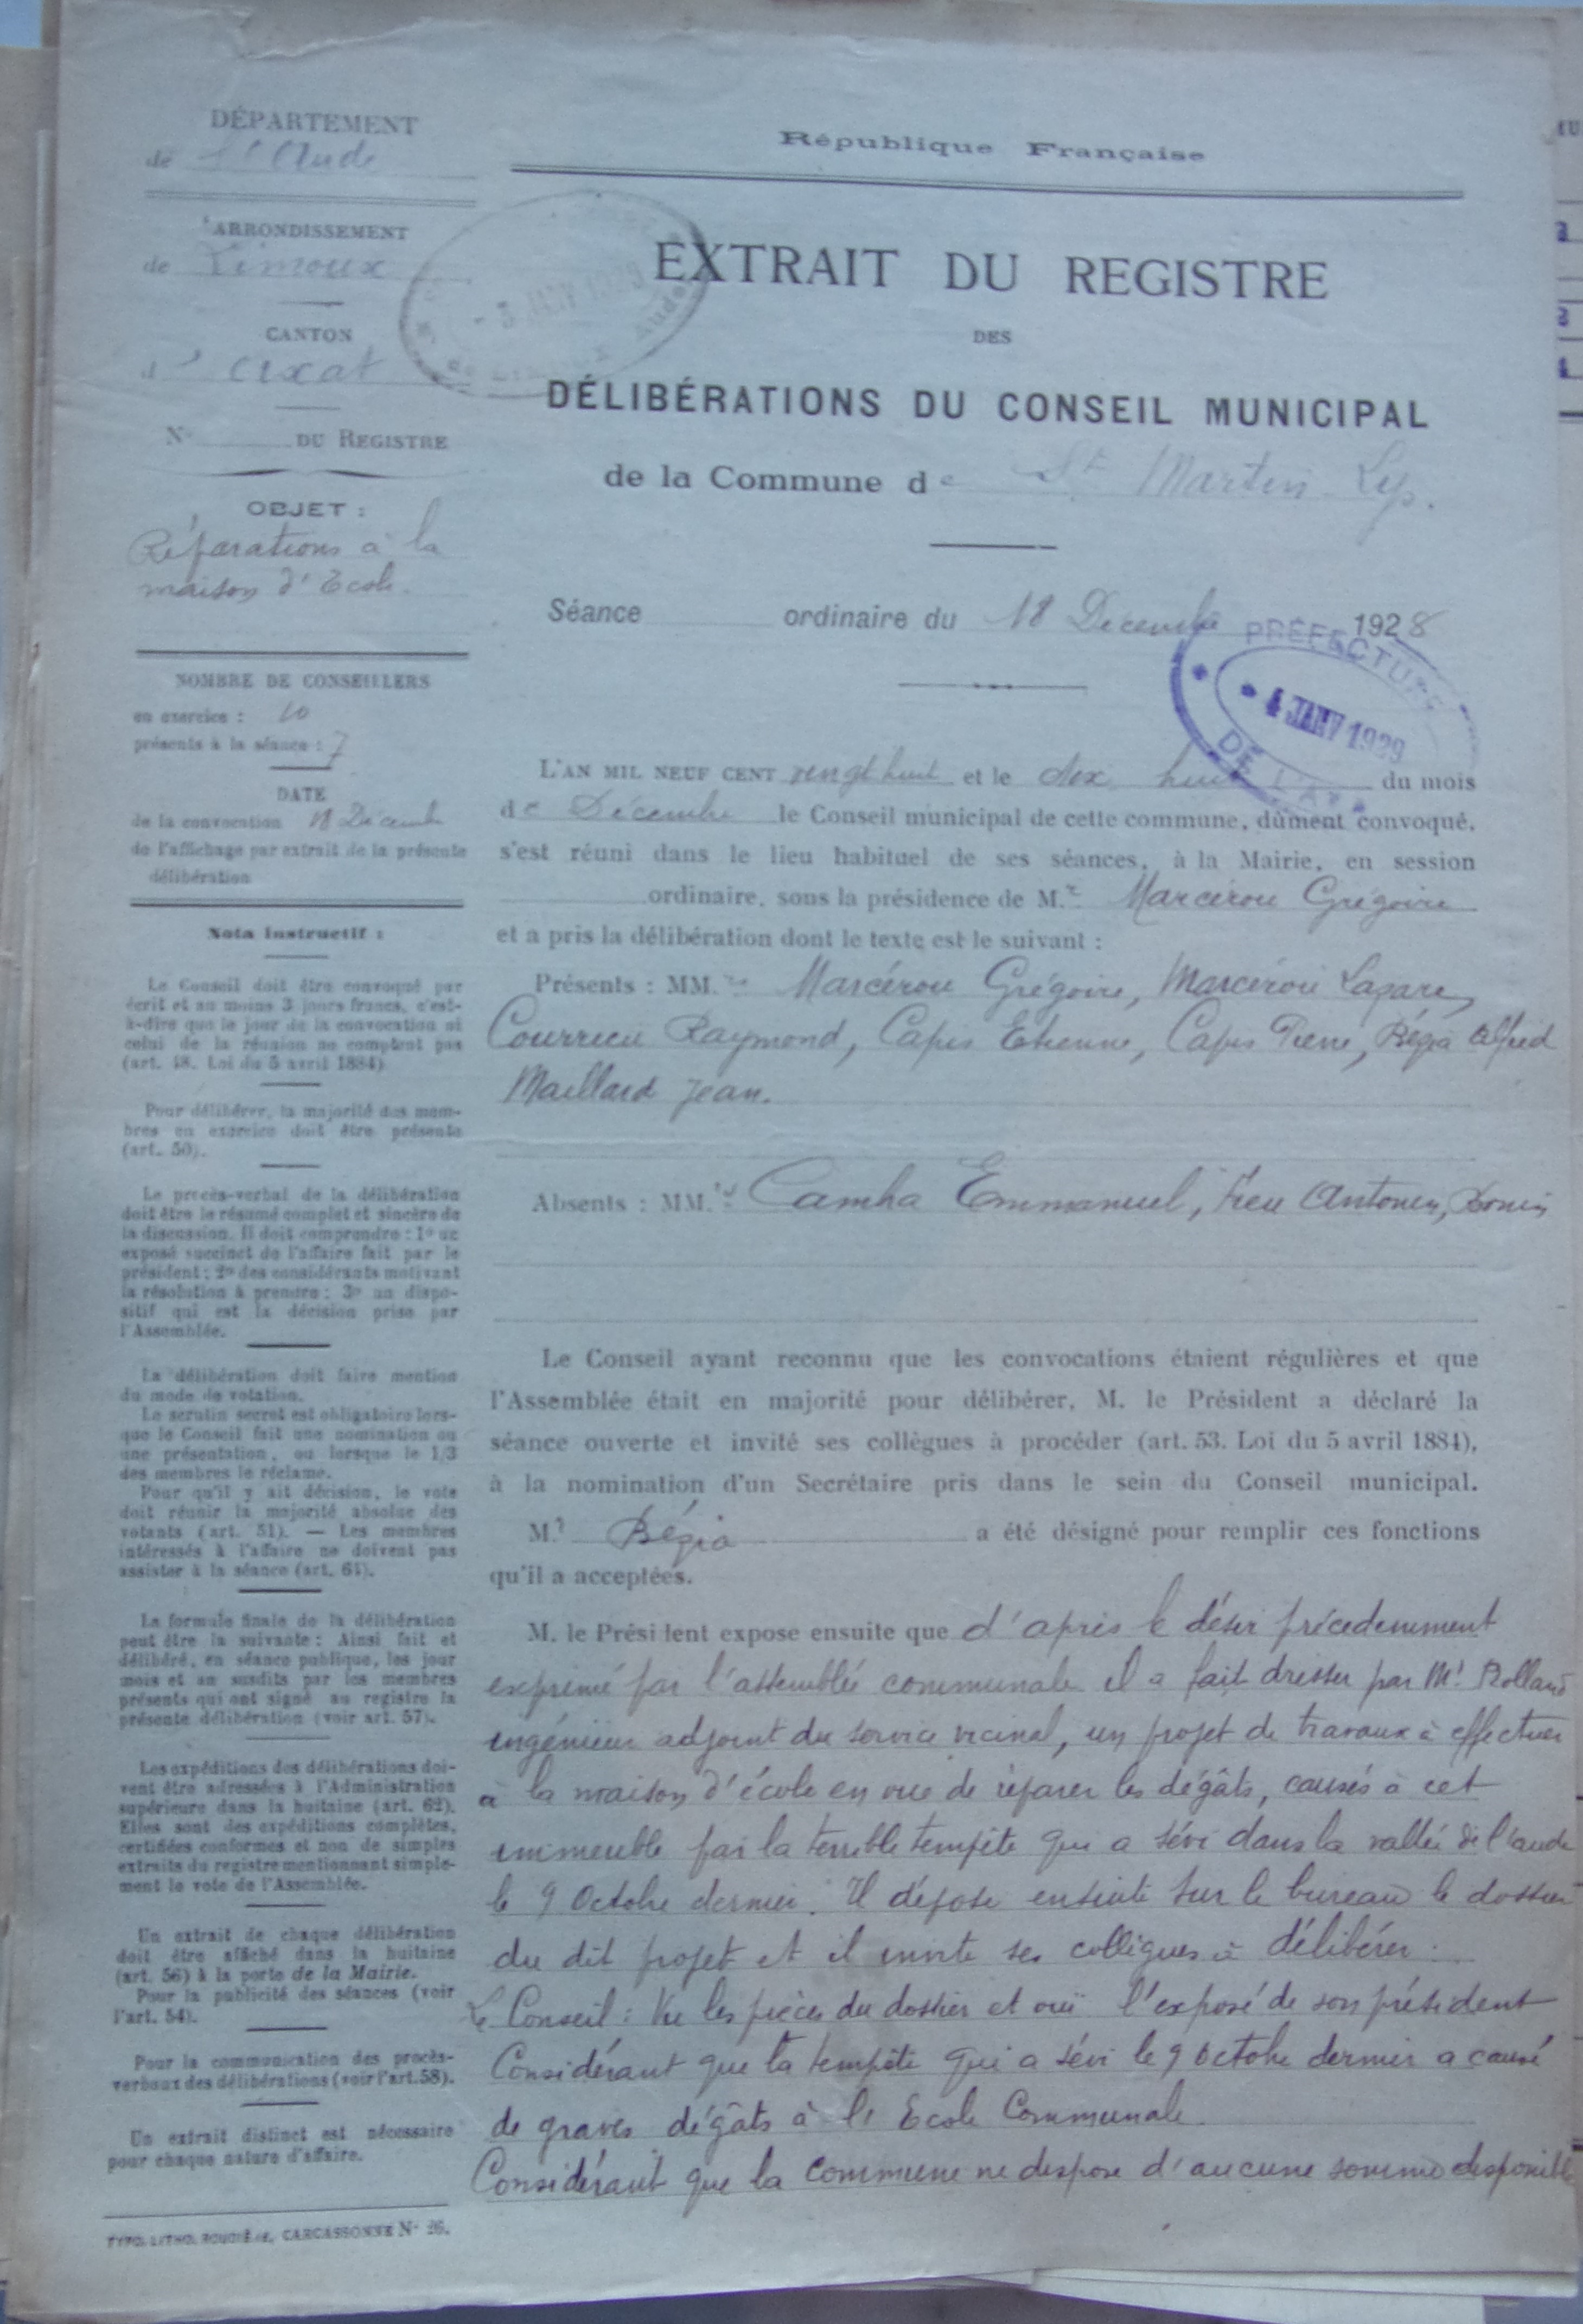 DÉPARTEMENT
de l'Aude
ARRONDISSEMENT
de Limoux
CANTON
d' Axat
N° DU REGISTRE
OBJET :
Réparations à la
maison d'Ecole.
NOMBRE DE CONSEILLERS
en exercice : 10
présents à la séance : 7
DATE
de la convocation 18 Décembre
de l'affichage par extrait de la présente
délibération
Nota instructif :
Le Conseil doit être convoqué par
écrit et au moins 3 jours francs, c'est-
à-dire que le jour de la convocation ni
celui de la réunion ne comptent pas
(art. 48. Loi du 5 avril 1884)
Pour délibérer, la majorité des mem-
bres en exercice doit être présente
(art. 50).
Le procès-verbal de la délibération
doit être le résumé complet et sincère de
la discussion. Il doit comprendre : 1° un
exposé succinct de l'affaire fait par le
président ; 2° des considérants motivant
la résolution à prendre ; 3° un dispo-
sitif qui est la décision prise par
l'Assemblée.
La délibération doit faire mention
du mode de votation.
Le scrutin secret est obligatoire lors-
que le Conseil fait une nomination ou
une présentation, ou lorsque le 1/3
des membres le réclame.
Pour qu'il y ait décision, le vote
doit réunir la majorité absolue des
votants (art. 51). — Les membres
intéressés à l'affaire ne doivent pas
assister à la séance (art. 64).
La formule finale de la délibération
peut être la suivante : Ainsi fait et
délibéré, en séance publique, les jour
mois et an susdits par les membres
présents qui ont signé au registre la
présente délibération (voir art. 57).
Les expéditions des délibérations doi-
vent être adressées à l'Administration
supérieure dans la huitaine (art. 62).
Elles sont des expéditions complètes,
certifiées conformes et non de simples
extraits du registre mentionnant simple-
ment le vote de l'Assemblée.
Un extrait de chaque délibération
doit être affiché dans la huitaine
(art. 56) à la porte de la Mairie.
Pour la publicité des séances (voir
l'art. 54).
Pour la communication des procès-
verbaux des délibérations (voir l'art. 58).
Un extrait distinct est nécessaire
pour chaque nature d'affaire.
CARCASSONNE N° 26.
République Française
EXTRAIT DU REGISTRE
DES
DÉLIBÉRATIONS DU CONSEIL MUNICIPAL
de la Commune de St Martin-Lys.
Séance ordinaire du 18 Décembre 1928
PRÉFECTURE
4 JANV 1929
DE L'AUDE
L'AN MIL NEUF CENT vingt huit et le dix huit du mois
de Décembre le Conseil municipal de cette commune, dûment convoqué,
s'est réuni dans le lieu habituel de ses séances, à la Mairie, en session
ordinaire, sous la présidence de M.r Marcérou Grégoire
et a pris la délibération dont le texte est le suivant :
Présents : MM. Marcérou Grégoire, Marcérou Lazare,
Courrieu Raymond, Capis Etienne, Capis Pierre, Bégia Alfred
Maillard Jean.
Absents : MM. Camha Emmanuel, Antonin,
Le Conseil ayant reconnu que les convocations étaient régulières et que
l'Assemblée était en majorité pour délibérer, M. le Président a déclaré la
séance ouverte et invité ses collègues à procéder (art. 53. Loi du 5 avril 1884),
à la nomination d'un Secrétaire pris dans le sein du Conseil municipal.
M.r Bégia a été désigné pour remplir ces fonctions
qu'il a acceptées.
M. le Président expose ensuite que d'après le désir précedemment
exprimé par l'assemblée communale il a fait dresser par Mr Rolland
ingénieur adjoint du service vicinal, un projet de travaux à effectuer
à la maison d'école en vue de réparer les dégâts, causés à cet
immeuble par la terrible tempête qui a sévi dans la vallée de l'aude
le 9 Octobre dernier. Il dépose ensuite sur le bureau le dossier
du dit projet et il invite ses collègues à délibérer.
Le Conseil : Vu les pièces du dossier et ouï l'exposé de son président
Considérant que la tempête qui a sévi le 9 octobre dernier a causé
de graves dégâts à l'Ecole Communale.
Considérant que la Commune ne dispose d'aucune somme disponible